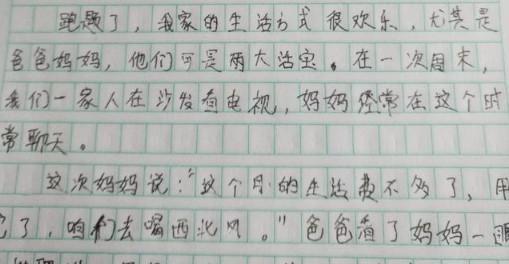 跑题了，我家的生活方式很欢乐，尤其是
爸爸妈妈，他们可是两大活宝。在一次周末，
我们一家人在沙发看电视，妈妈经常在这个时
常聊天。
这次妈妈说："这个月的生活费不多了，用
完了，咱们去喝西北风。"爸爸看了妈妈一眼